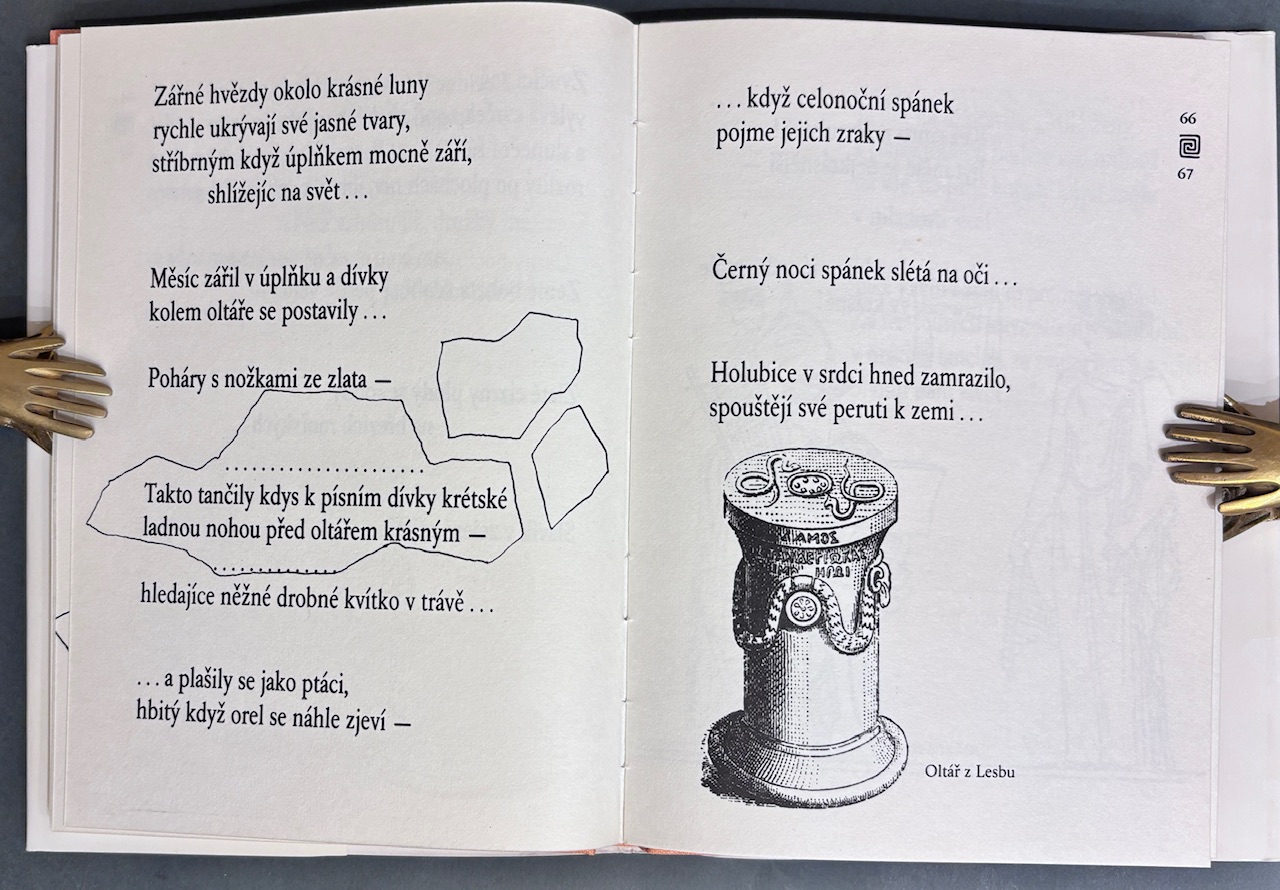 Zářné hvězdy okolo krásné luny
rychle ukrývají své jasné tvary,
stříbrným když úplňkem mocně září,
shlížejíc na svět...
Měsíc zářil v úplňku a dívky
kolem oltáře se postavily...
Poháry s nožkami ze zlata —
Takto tančily kdys k písním dívky krétské
ladnou nohou před oltářem krásným —
hledajíce něžné drobné kvítko v trávě...
...a plašily se jako ptáci,
hbitý když orel se náhle zjeví —
...když celonoční spánek
pojme jejich zraky —
66
67
Černý noci spánek slétá na oči...
Holubice v srdci hned zamrazilo,
spouštějí své peruti k zemi...
Oltář z Lesbu